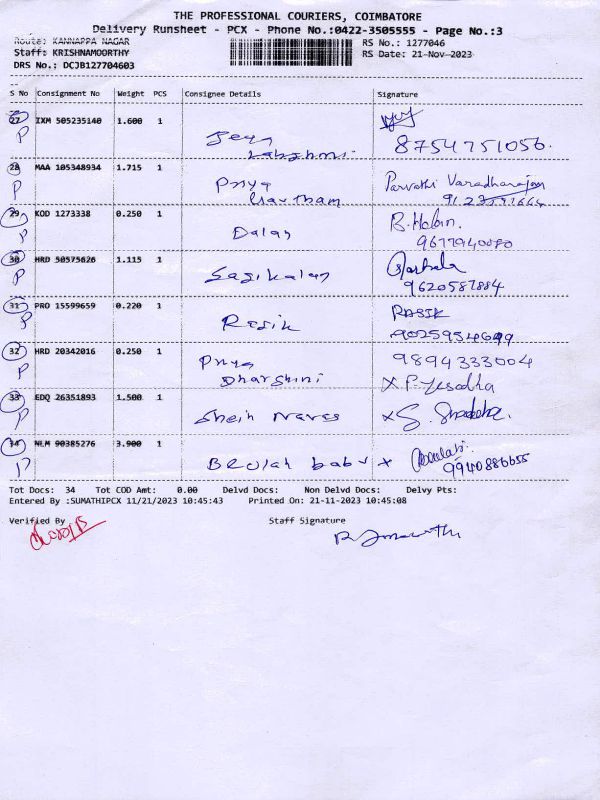 THE PROFESSIONAL COURIERS, COIMBATORE
Delivery Runsheet - PCX - Phone No.:0422-3505555 - Page No.:3
Route: KANNAPPA NAGAR
RS No.: 1277046
Staff: KRISHNAMOORTHY
RS Date: 21-Nov-2023
DRS No.: DCJB127704603
S No Consignment No Weight PCS Consignee Details Signature
27 IXM 505235140 1.600 1
P Jeya Lakshmi 8754751056.
28 MAA 105348934 1.715 1 Parvathi Varadharajan
P Priya Gawtham
29 KOD 1273338 0.250 1
P Dalas
30 HRD 50575626 1.115 1
P Sasikalas 9620587884
31 PRO 15599659 0.220 1 RASIK
P Rasik
32 HRD 20342016 0.250 1 9894333004
P Priya Dharshini x P. Yesodha
33 EDQ 26351893 1.500 1
P x S.
34 NLM 90385276 3.900 1
P Beulah babu x 9940886655
Tot Docs: 34 Tot COD Amt: 0.00 Delvd Docs: Non Delvd Docs: Delvy Pts:
Entered By :SUMATHIPCX 11/21/2023 10:45:43 Printed On: 21-11-2023 10:45:08
Verified By Staff Signature